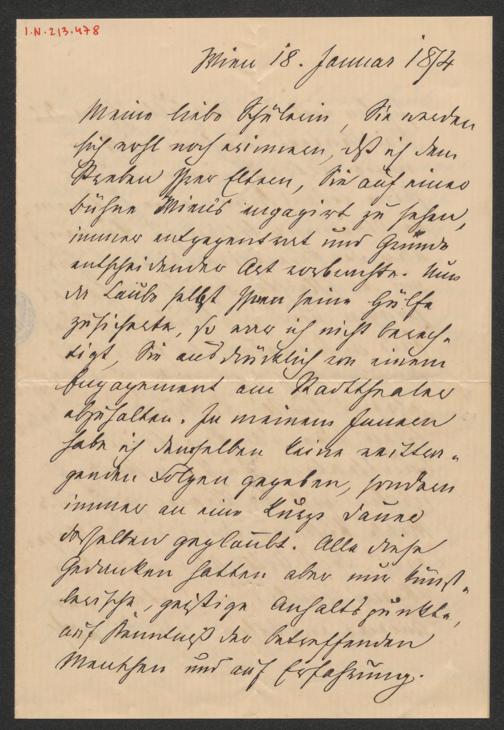 I.N. 213.478
Wien 18. Januar 1874
Meine liebe Schülerin, Sie werden
sich wohl noch erinnern, daß ich dem
Streben Ihrer Eltern, Sie auf einer
Bühne Wiens engagirt zu sehen,
immer entgegentrat und Gründe
entscheidender Art vorbrachte. Nun
da Laube selbst Ihnen seine Hülfe
zusicherte, so war ich nicht berech-
tigt, Sie ausdrücklich von einem
Engagement am Stadttheater
abzuhalten. In meinem Innern
habe ich demselben keine weittra-
genden Folgen gegeben, sondern
immer an eine kurze Dauer
desselben geglaubt. Alle diese
Gedanken hatten aber nur künst-
lerische, geistige Anhaltspunkte,
auf Kenntniß der betreffenden
Menschen und auf Erfahrung.